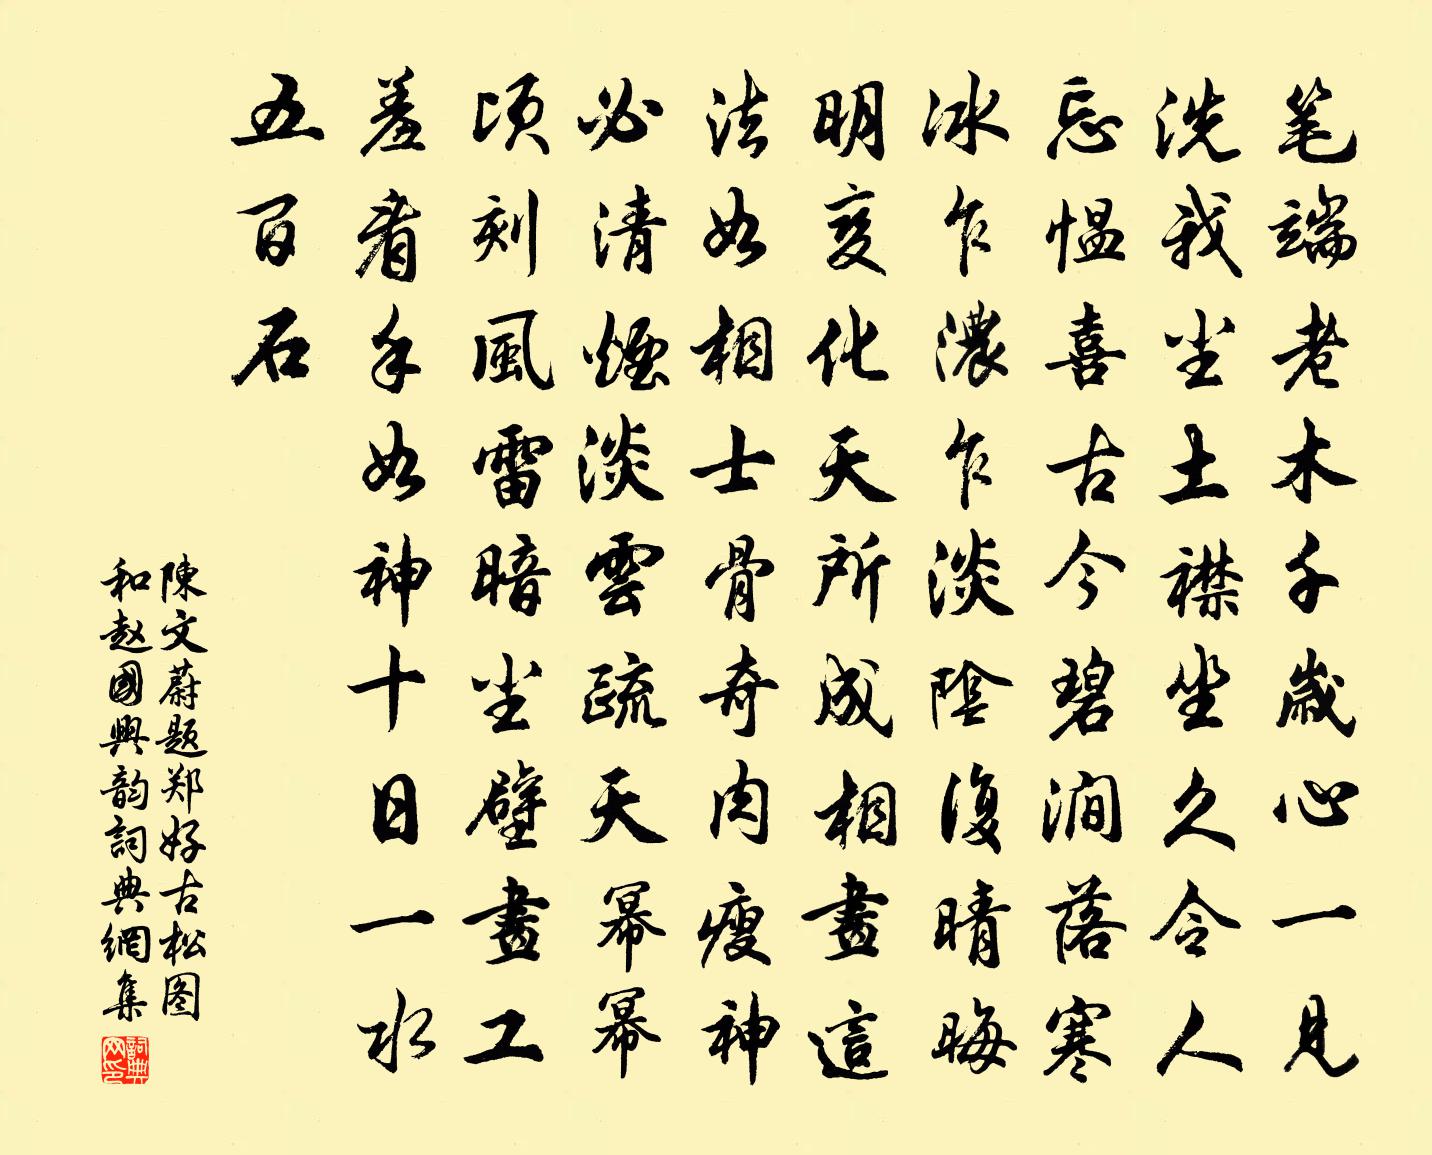 笔端老木千歳心一見
洗我尘土襟坐久令人
忘愠喜古今碧澗落寒
冰乍濃乍淡陰復晴晦
明变化天所成相畫這
法如相士骨奇肉瘦神
必清煙淡雲疏天幂幂
頃刻風雷暗尘壁畫工
羞看手如神十日一水
五百石
陳文蔚题郑好古松图
和赵國興韵詞典網集
詞典
网印